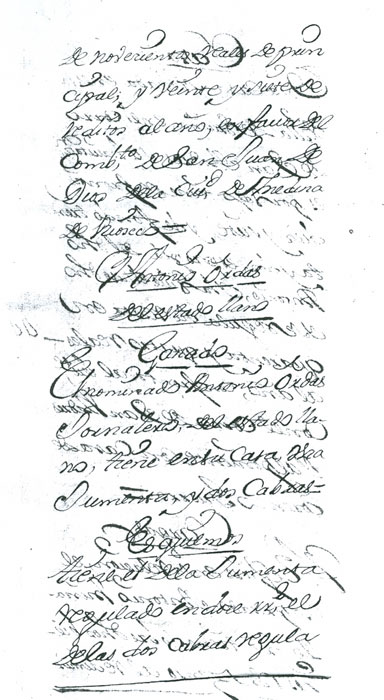 de novecientos reales de prin
cipal, y Veinte y siete de
reditos al año, a favor del
Combto de San Juan de
Dios de la Ciud de Medina
de Rioseco =
Antonio Ordas
del estado llano
Ganado
El nominado Antonio Ordas
Jornalero, del estado lla-
no, tiene en su Casa Una
Jumenta, y dos Cabras =
Esquilmos
el de la Jumenta
regulado en doce rrs, el
de las dos Cabras regula